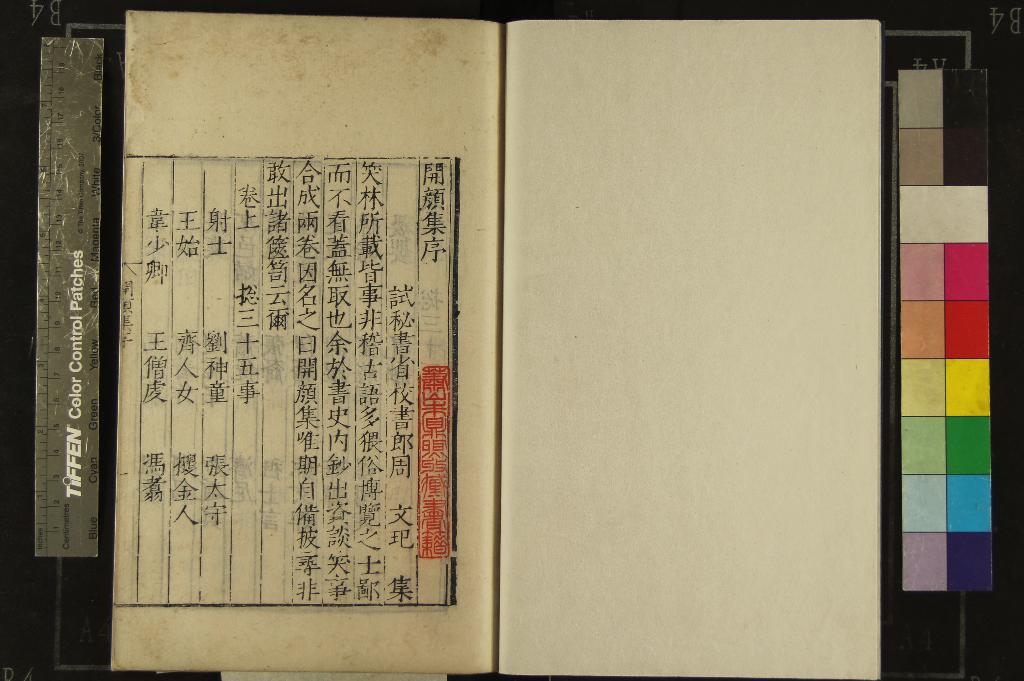 開顏集序
試秘書省校書郎周 文玘 集
笑林所載皆事非稽古語多猥俗博覽之士鄙
而不看蓋無取也余於書史內鈔出資談笑事
合成兩卷因名之曰開顏集唯期自備披尋非
敢出諸篋笥云爾
卷上 揔三十五事
射士 劉神童 張太守
王始 齊人女 攫金人
韋少卿 王僧虔 馮翥
開顏集序
TIFFEN Color Control Patches
Blue Cyan Green Yellow Red Magenta White 3/Color Black
Inches
Centimetres
B4
B4
A4
A4
A4
B4